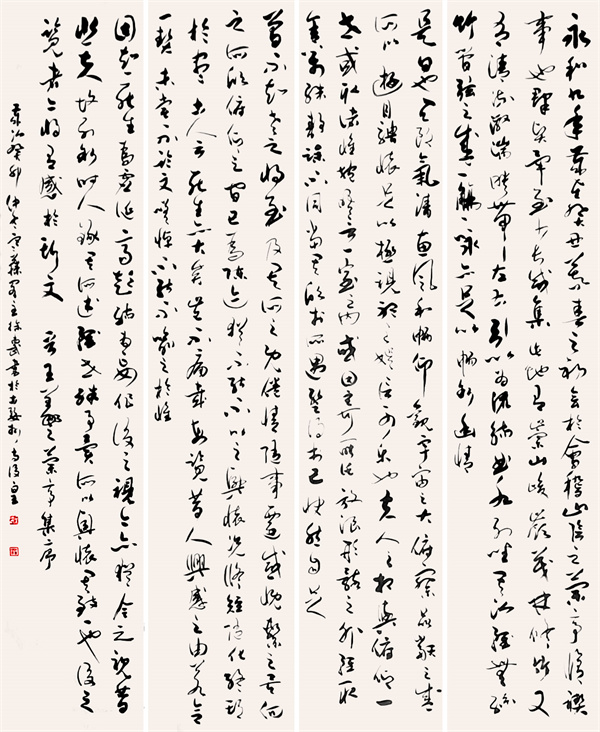 永和九年歲在癸丑暮春之初會於會稽山陰之蘭亭脩禊
事也群賢畢至少長咸集此地有崇山峻嶺茂林脩竹又
有清流激湍映帶左右引以為流觴曲水列坐其次雖無絲
竹管弦之盛一觴一詠亦足以暢敘幽情
是日也天朗氣清惠風和暢仰觀宇宙之大俯察品類之盛
所以遊目騁懷足以極視聽之娛信可樂也夫人之相與俯仰一
世或取諸懷抱悟言一室之內或因寄所託放浪形骸之外雖取
舍萬殊靜躁不同當其欣於所遇暫得於己快然自足
曾不知老之將至及其所之既倦情隨事遷感慨繫之矣向
之所欣俯仰之間已為陳迹猶不能不以之興懷況脩短隨化終期
於盡古人云死生亦大矣豈不痛哉每覽昔人興感之由若合
一契未嘗不臨文嗟悼不能喻之於懷
固知一死生為虛誕齊彭殤為妄作後之視今亦猶今之視昔
悲夫故列敘時人錄其所述雖世殊事異所以興懷其致一也後之
覽者亦將有感於斯文 右王羲之蘭亭集序
歲次癸卯仲冬